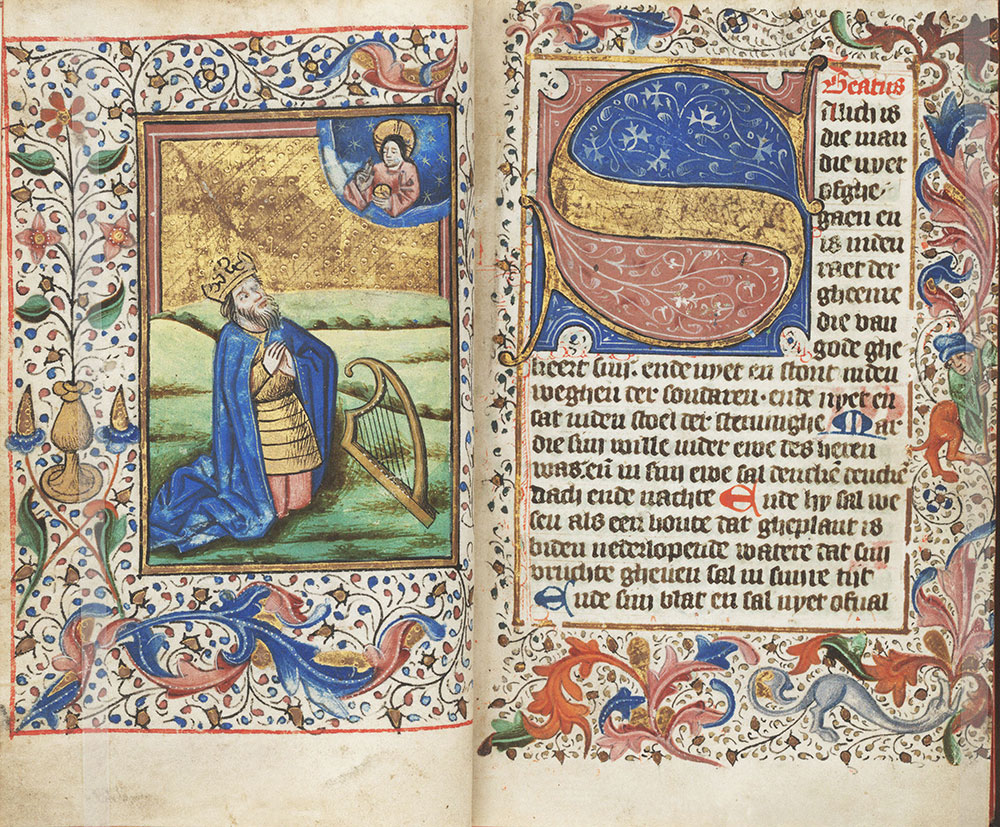 Beatus
Alich is
die man
die nyet
afghe
gaen en
is inden
raet der
gheenre
die van
gode ghe
keert sijn. ende nyet en stont inden
weghen der sondaren. ende nyet en
sat inden stoel der steruinghe Mar
die sijn wille inder ewe des heren
was eñ in sijn ewe sal dencken
dach ende nachte Ende hy sal we
sen als een houte dat gheplant is
biden nederlopende watere dat sijn
vruchte gheuen sal in sijnre tijt
Ende sijn blat en sal nyet ofual